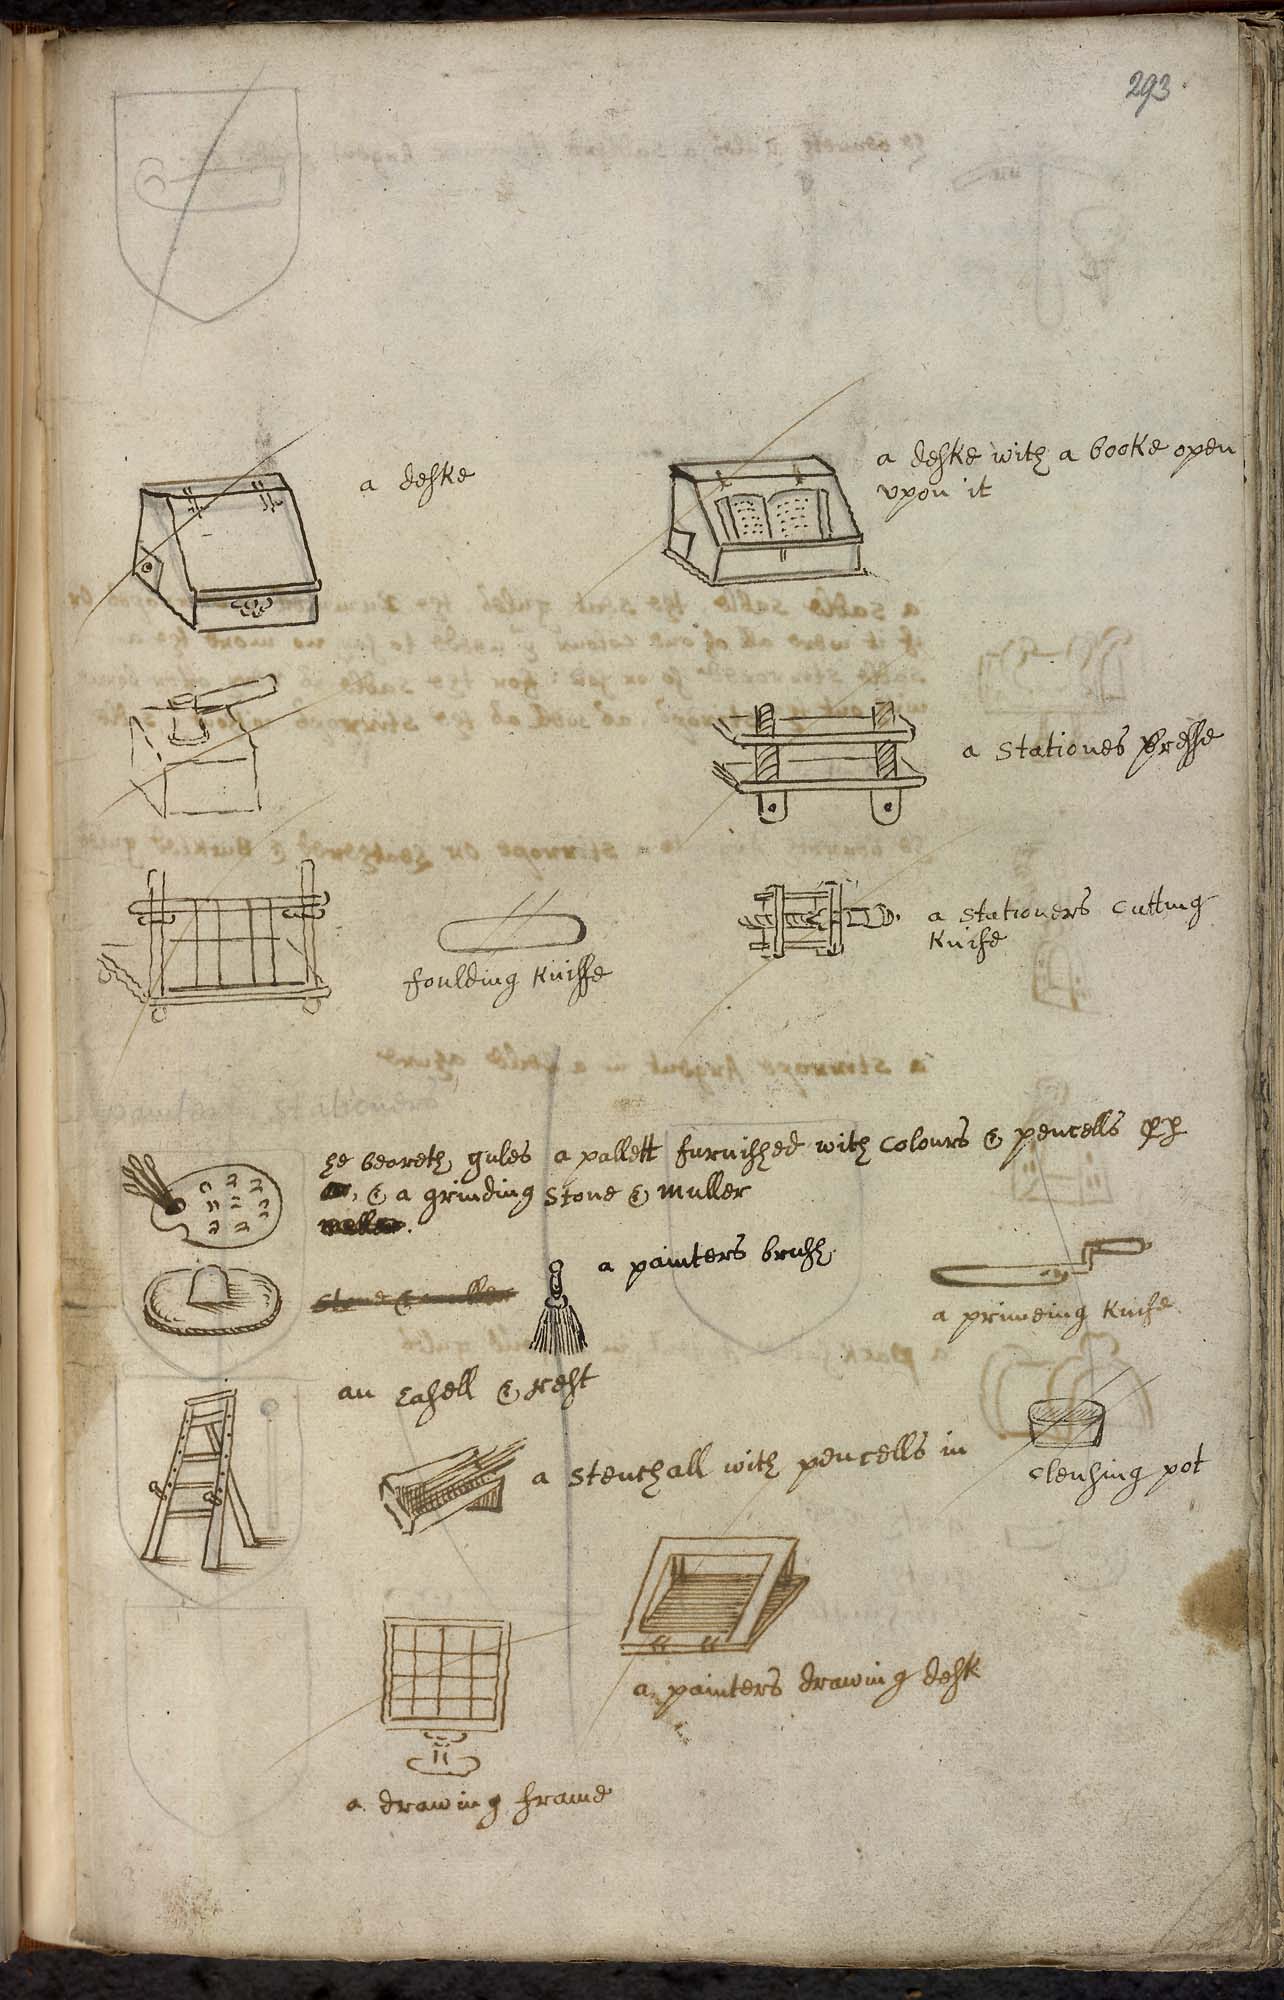 293
a deske
a deske with a booke open
vpon it
a Stationes Presse
foulding kniffe
a Stationers Cutting
Knife
painters stationers
he beareth gules a pallett furnished with Colours & pencells
& a grinding Stone & Muller
muller.
Stone & muller
a painters brush
a primeing Knife
an Easell & Rest
a Stenchall with pencells in
Clensing pot
a painters drawing desk
a drawing frame